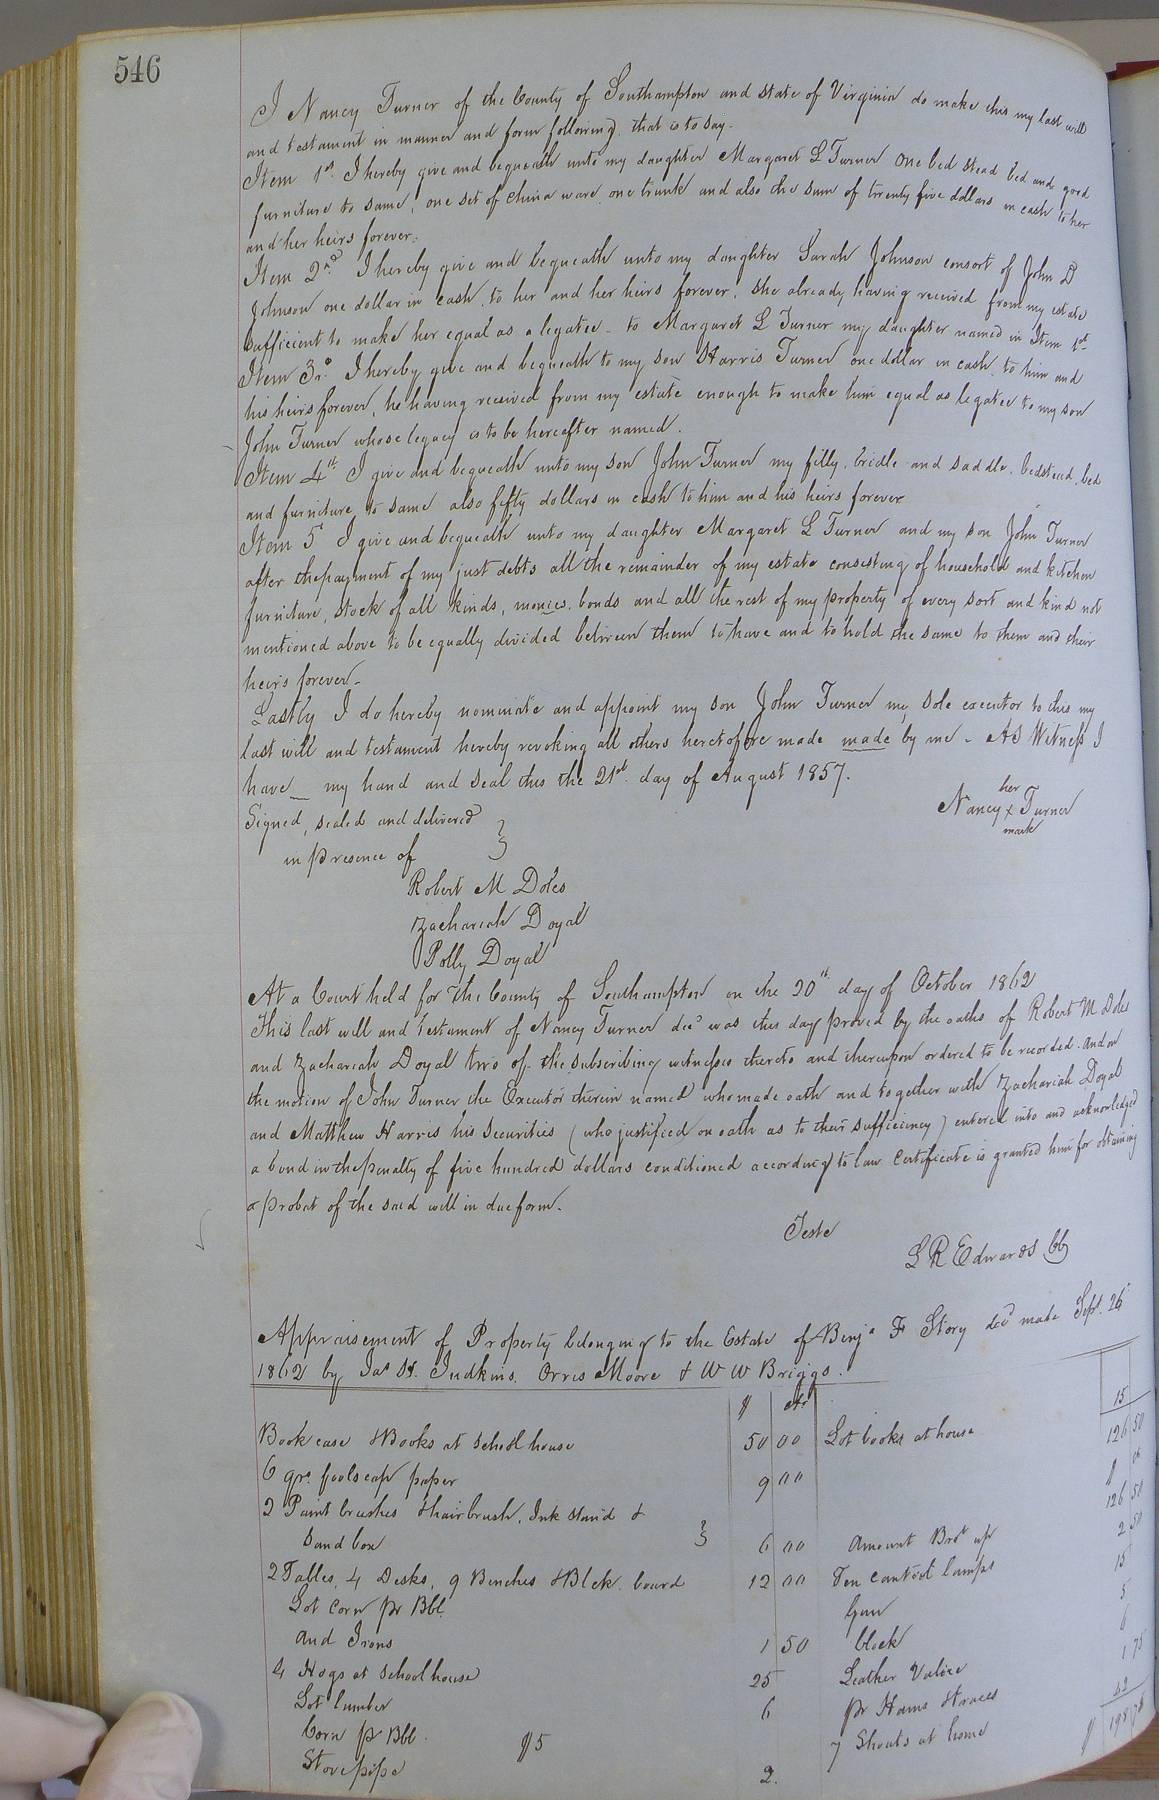 546
I Nancy Turner of the County of Southampton and state of Virginia do make this my last will
and testament in manner and form following, that is to say -
Item 1st I hereby give and bequeath unto my daughter Margaret L Turner one bed stead bed and good
furniture to same, one set of China ware, one trunk and also the sum of twenty five dollars in cash to her
and her heirs forever.
Item 2nd I hereby give and bequeath unto my daughter Sarah Johnson consort of John D
Johnson one dollar in cash, to her and her heirs forever, she already having received from my estate
sufficient to make her equal as a legatee - to Margaret L Turner my daughter named in Item 1st
Item 3rd I hereby give and bequeath to my son Harris Turner one dollar in cash, to him and
his heirs forever, he having received from my estate enough to make him equal as legatee to my son
John Turner whose legacy is to be hereafter named.
Item 4th I give and bequeath unto my son John Turner my filly, bridle and saddle, bedstead, bed
and furniture to same also fifty dollars in cash to him and his heirs forever
Item 5 I give and bequeath unto my daughter Margaret L Turner and my son John Turner
after the payment of my just debts all the remainder of my estate consisting of household and kitchen
furniture, stock of all kinds, monies, bonds and all the rest of my property of every sort and kind not
mentioned above to be equally divided between them to have and to hold the same to them and their
heirs forever -
Lastly I do hereby nominate and appoint my son John Turner my sole executor to this my
last will and testament hereby revoking all others heretofore made made by me - As Witness I
have my hand and seal this the 21st day of August 1857.
her
Nancy x Turner
mark
Signed, sealed and delivered
in presence of
Robert M Doles
Zachariah Doyal
Polly Doyal
At a Court held for the County of Southampton on the 20th day of October 1862
This last will and testament of Nancy Turner decd was this day proved by the oaths of Robert M Doles
and Zachariah Doyal two of the subscribing witnesses thereto and thereupon ordered to be recorded. And on
the motion of John Turner the Executor therein named who made oath and together with Zachariah Doyal
and Matthew Harris his securities (who justified on oath as to their sufficiency) entered into and acknowledged
a bond in the penalty of five hundred dollars conditioned according to law Certificate is granted him for obtaining
a probat of the said will in due form.
Teste
L R Edwards CC
Appraisement of Property belonging to the Estate of Benja F Story decd made Sept. 26
1862 by Jas H. Judkins, Orris Moore & W W Briggs.
$ cts
Book case & Books at School house 50 00 Lot books at house 15
6 qrs foolscap paper 9 00 126 50
2 Paint brushes & hairbrush, Ink stand &
Sand box 6 00 Amount Brot up 126 50
2 Tables, 4 Desks, 9 Benches & Blck. board 12 00 Ten lamps 2 50
Lot Corn pr Bbl. Gun 15
And Irons 1 50 block 5
4 Hogs at School house 25 Leather Valise 6
Lot lumber 6 pr Hams & traces 1 75
Corn pr Bbl. $5 7 Shoats at home 42
Stove pipe 2. $ 198 75